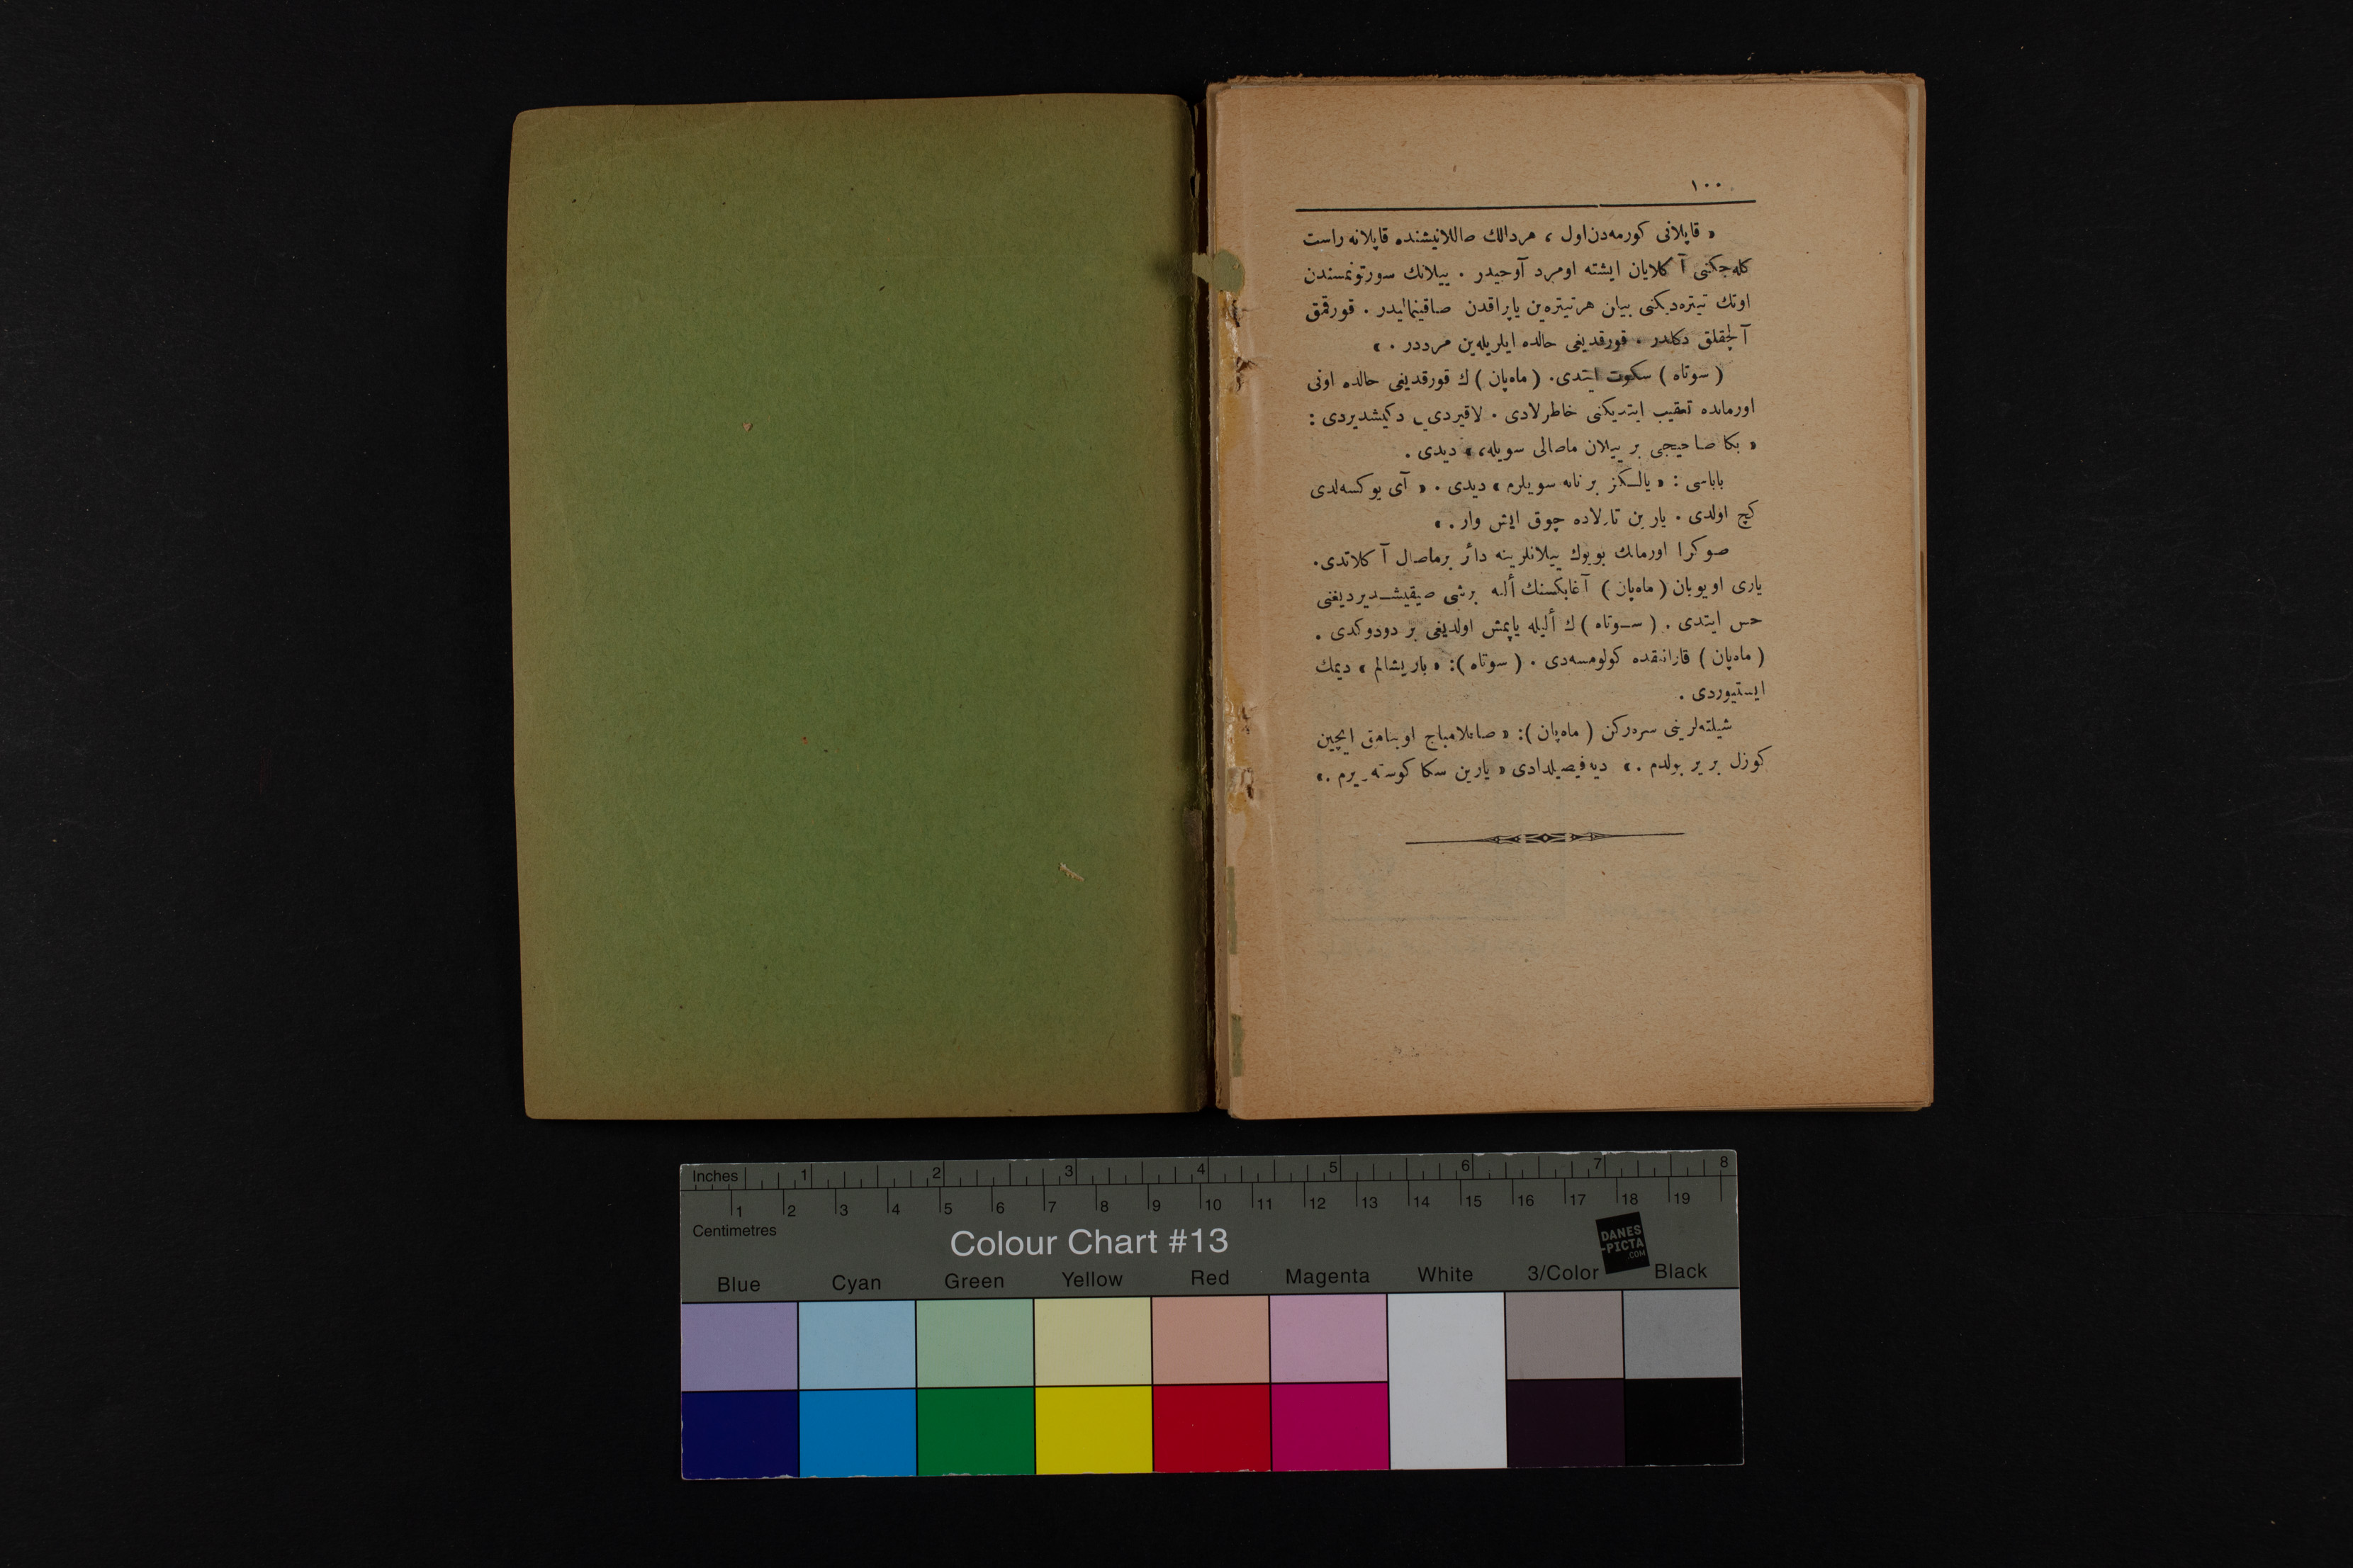 ١٠٠
« قاپلانی كورمه‌دن اول ، هر دالك صاللانیشنده قاپلانه راست
كله‌جكنی آ كلایان ایشته او مرد آوجیدر . ییلانك سورتونمسندن
اوتك تیتره‌دیكنی بیلن هر تیتره‌ین یاپراقدن صاقینمالیدر . قورقمق
آلچقلق دكلدر . قورقدیغی حالده ایلریله‌ین مرددر . »
( سوتاه ) سكوت ایتدی. ( ماه‌پان ) ك قورقدیغی حالده اونی
اورمانده تعقیب ایتدیكنی خاطرلادی . لاقیردی‌یی دكیشدیردی :
« بكا صاحیجی بر ییلان ماصالی سویله، » دیدی .
باباسی : « یالـكز بر تانه سویلرم » دیدی . « آی یوكسه‌لدی
كچ اولدی . یارین تارلاده چوق ایش وار . »
صوكرا اورمانك بویوك ییلانلرینه دائر بر ماصال آ كلاتدی.
یاری اویویان ( ماه‌پان ) آغابكسنك ألنه بر شی صیقیشـدیردیغنی
حس ایتدی . ( سـوتاه ) ك ألیله یاپمش اولدیغی بر دودوكدی .
( ماه‌پان ) قارانلقده كولومسه‌دی . ( سوتاه ): « باریشالم » دیمك
ایستیوردی .
شیلته‌لرینی سره‌ركن ( ماه‌پان ): « صاقلامباج اوینامق ایچین
كوزل بر یر بولدم . » دیه فیصیلدادی « یارین سكا كوسته‌ریرم . »
Inches 1 2 3 4 5 6 7 8
1 2 3 4 5 6 7 8 9 10 11 12 13 14 15 16 17 18 19
Centimetres
Colour Chart #13
DANES
-PICTA
.COM
Blue Cyan Green Yellow Red Magenta White 3/Color Black